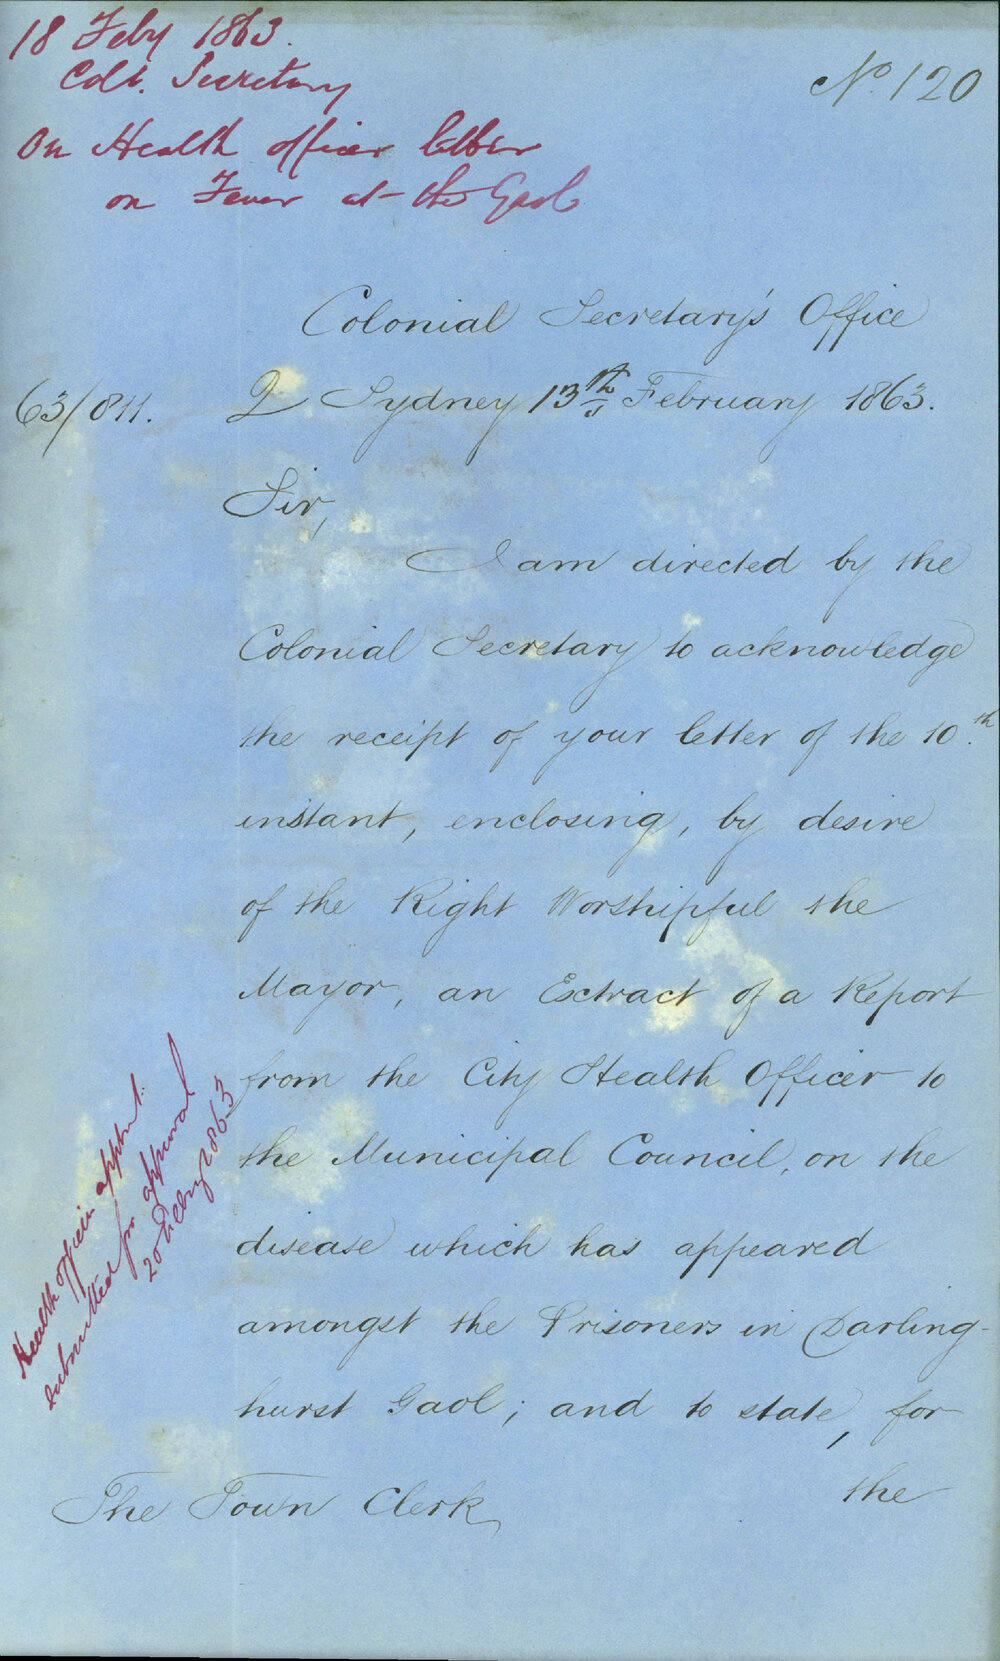 18 Feby 1863.
Coll. Secretary
On Health officer letter
on Fever at the Gaol
No. 120
Colonial Secretary's Office
63/811.
Sydney 13th February 1863.
Sir,
I am directed by the
Colonial Secretary to acknowledge
the receipt of your letter of the 10th.
instant, enclosing, by desire
of the Right Worshipful the
Mayor, an Extract of a Report
from the City Health Officer to
the Municipal Council, on the
disease which has appeared
amongst the Prisoners in Darling-
hurst Gaol; and to state, for
the
The Town Clerk
Health officer
submitted for approval
20 Feby 1863